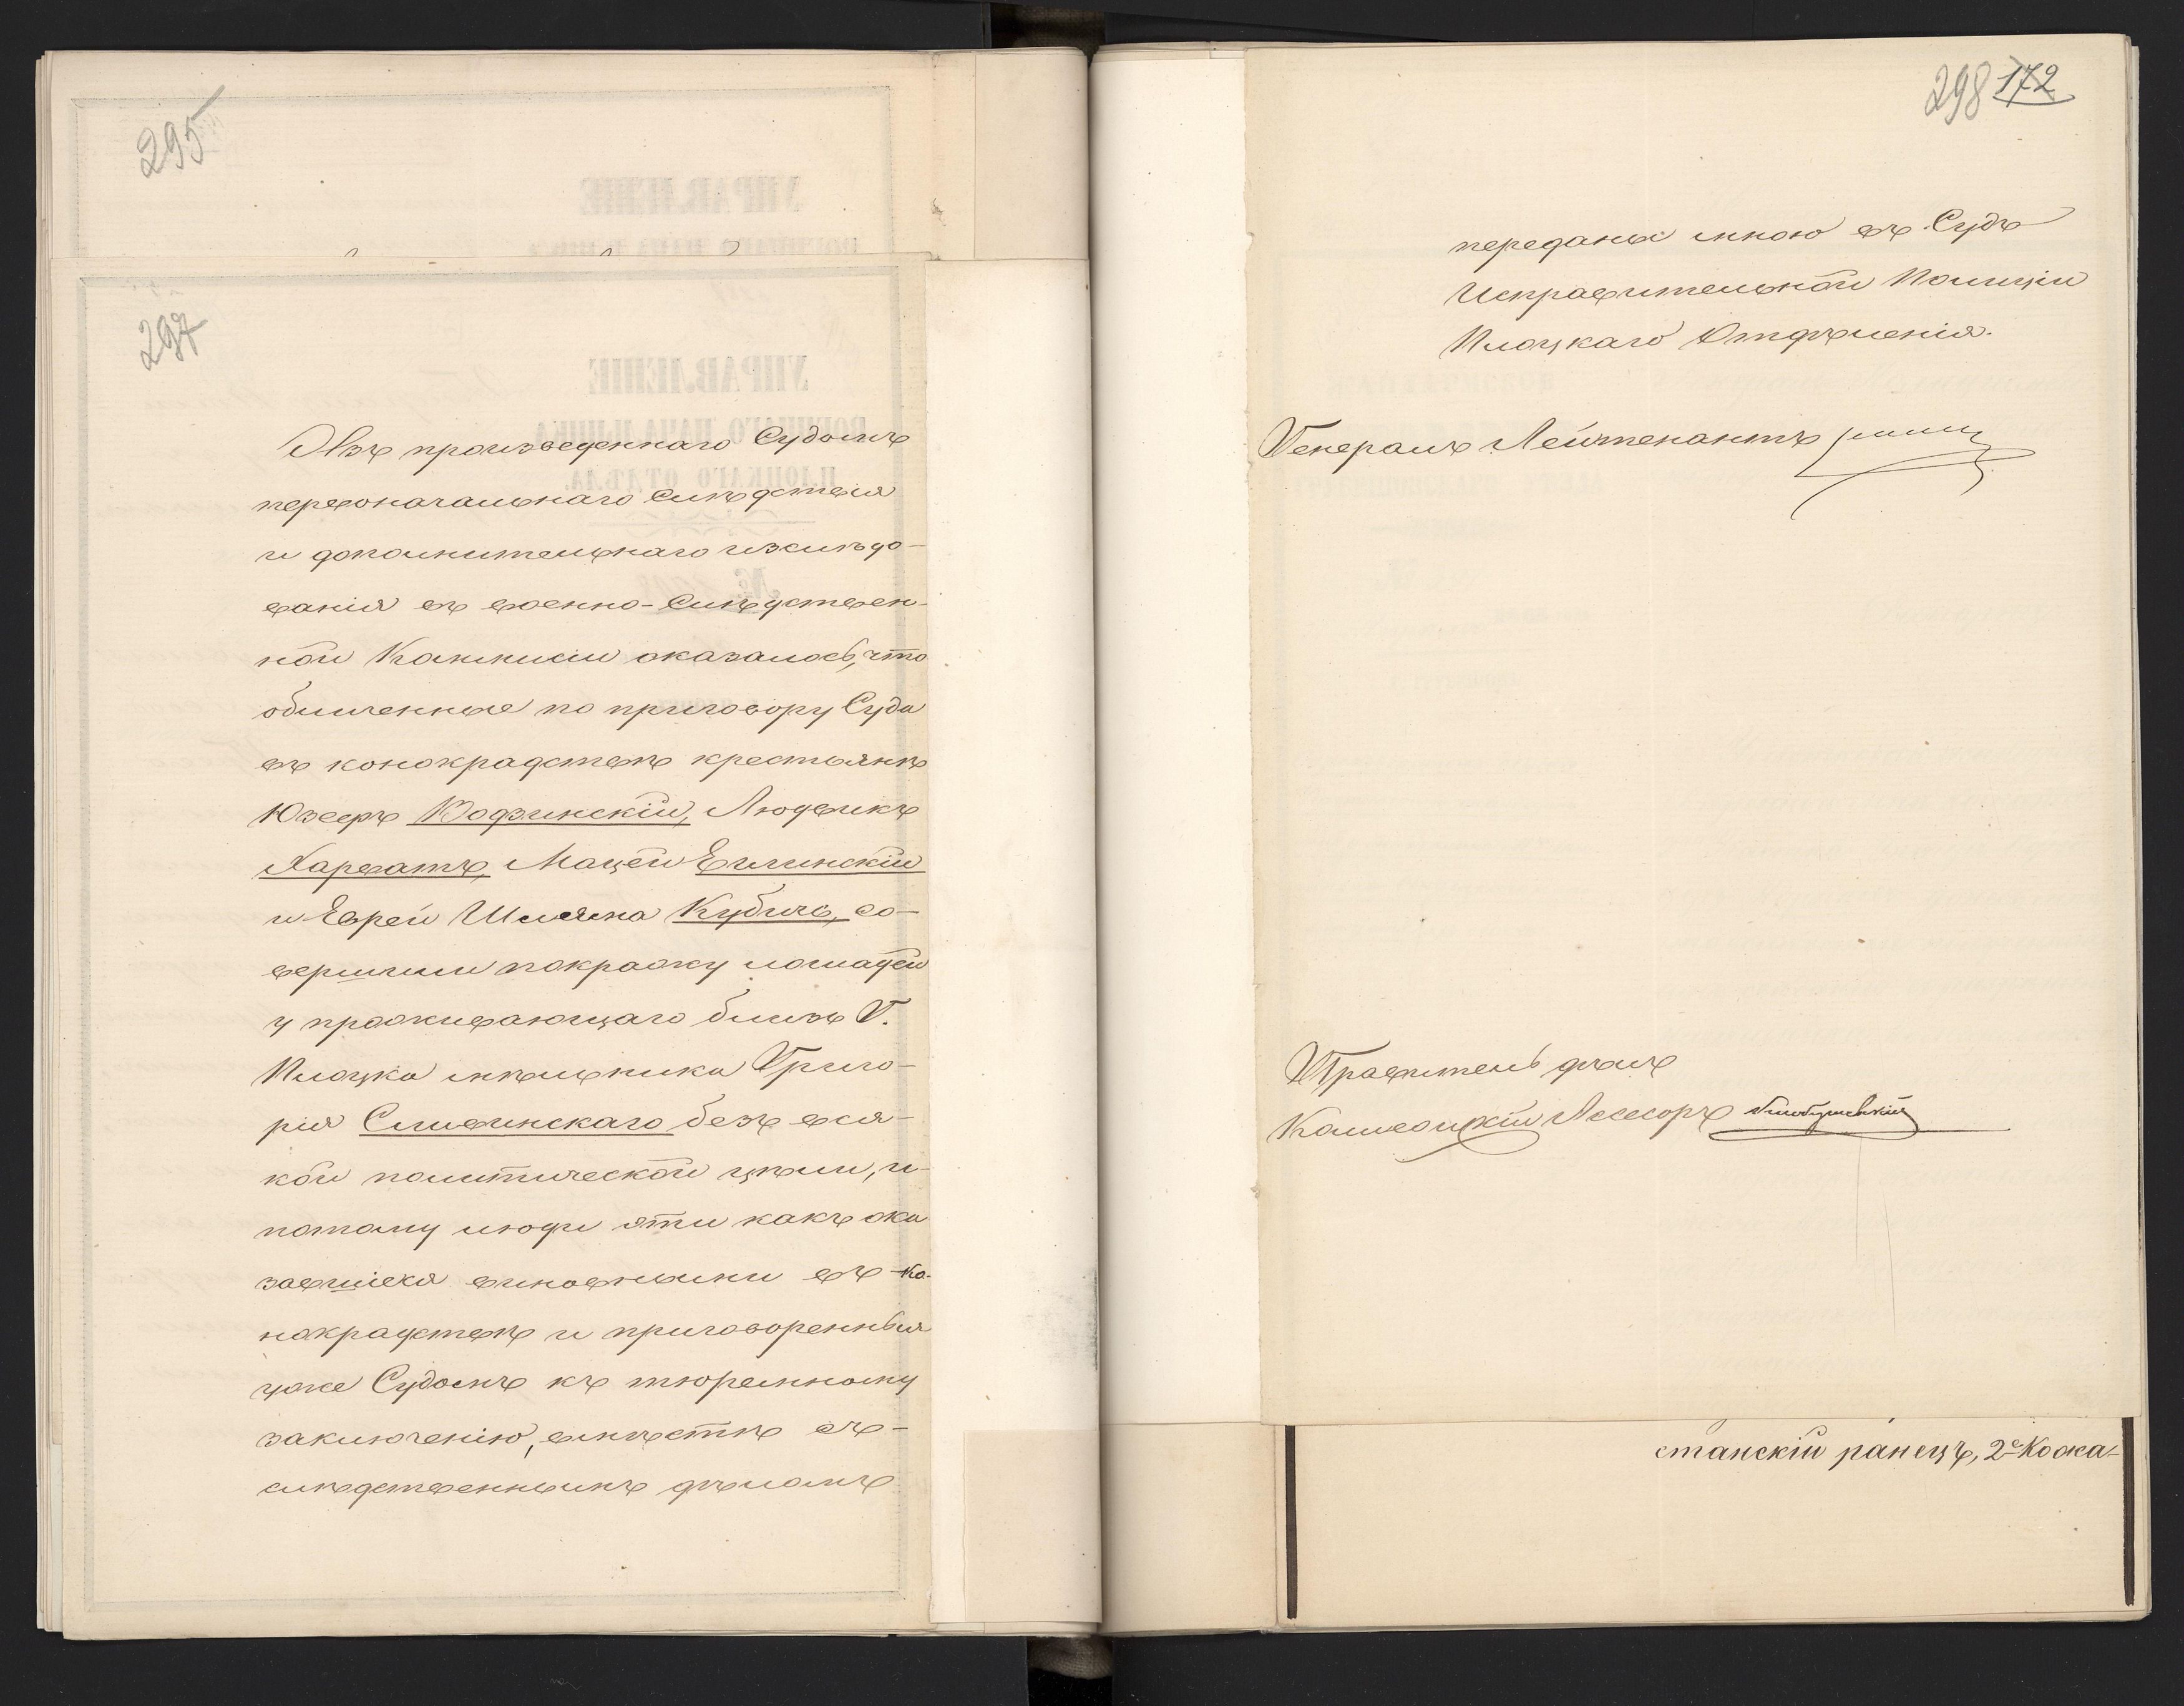 295
297
Изъ произведеннаго Судомъ
первоначальнаго слѣдствія
и дополнительнаго изслѣдо-
ванія въ военно-Слѣдствен-
ной Коммисіи оказалось, что
обличенные по приговору Суда
въ конокрадствѣ крестьянѣ
Юзефъ Водзинскій, Людвикъ
Харватъ, Мацей Ецилинскій
и Еврей Шляма Кубичь, со-
вершили покражу лошадей
у проживающаго близь Г.
Плоцка мѣльника Григо-
рія Сливинскаго безъ вся-
кой политической цѣли, и
потому люди эти какъ ока
завшіеся виновными въ ко-
нокрадствѣ и приговоренные
уже Судомъ къ тюремному
заключенію, вмѣстѣ съ-
слѣдственнымъ дѣломъ
298 172
переданы мною въ Судъ
Исправительной Полиціи
Плоцкаго Отдѣленія.
Генералъ Лейтенантъ
Правитель дѣлъ
Коллежскій Ассесоръ
станскій ранецъ, 2е Кожа-